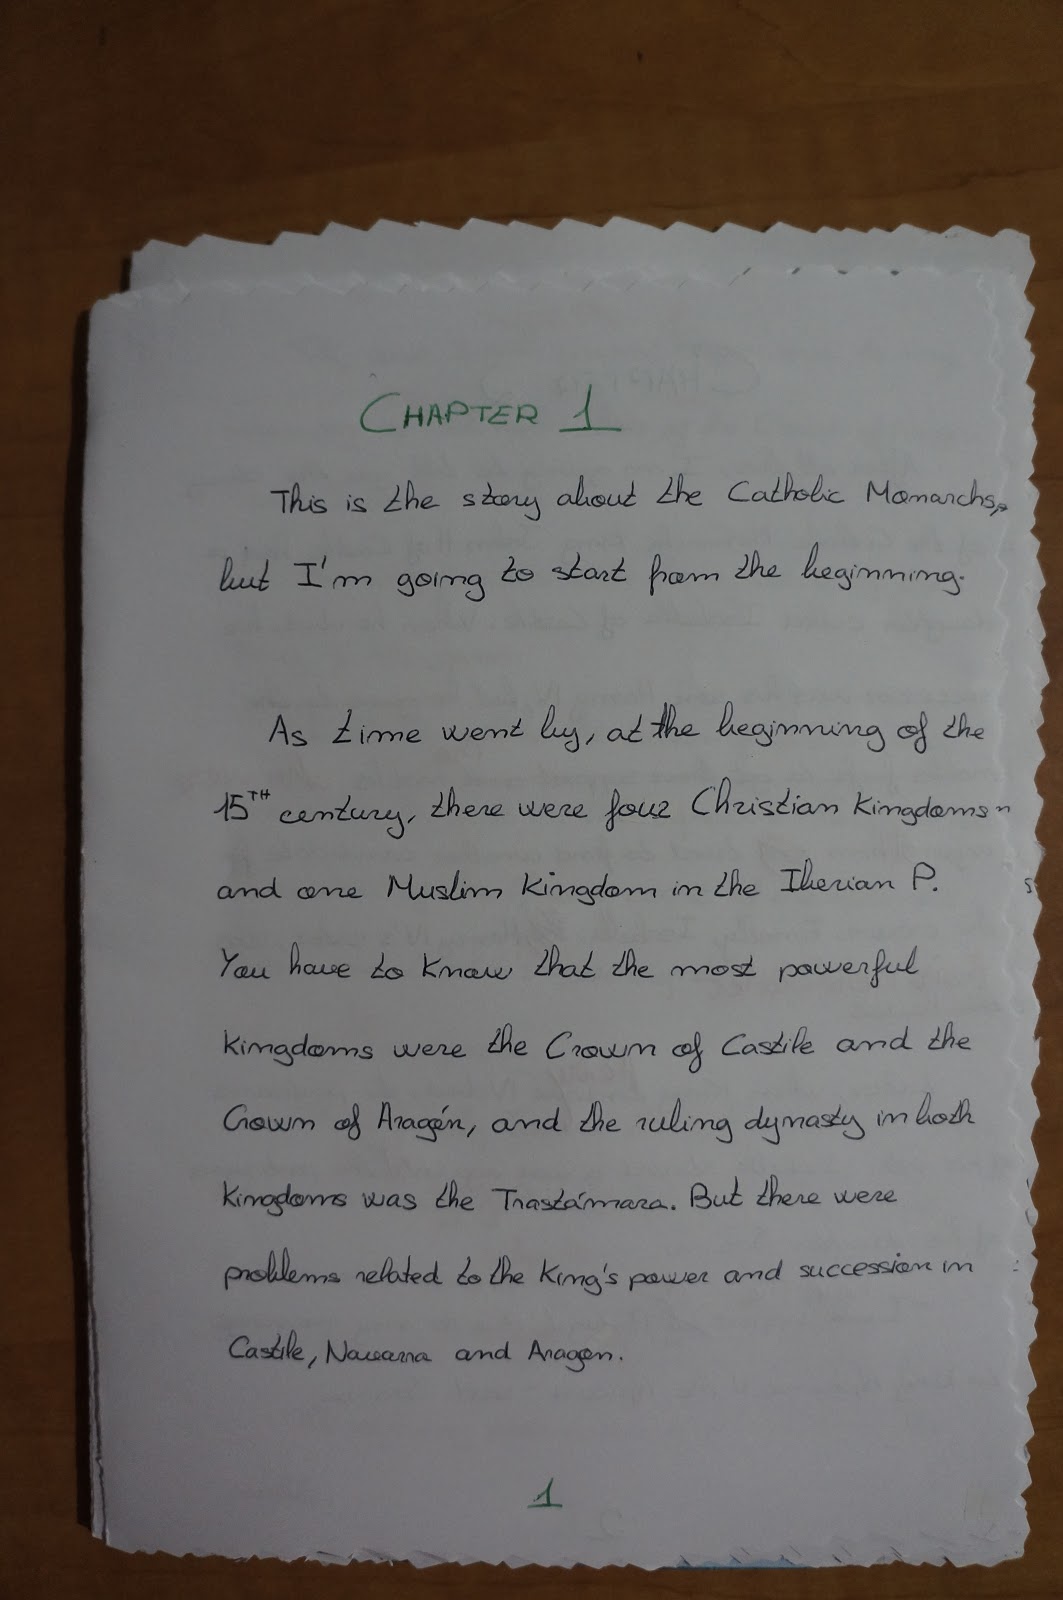 CHAPTER 1
This is the story about the Catholic Monarchs,
but I'm going to start from the beginning.
As time went by, at the beginning of the
15TH century, there were four Christian Kingdoms
and one Muslim Kingdom in the Iberian P.
You have to know that the most powerful
kingdoms were the Crown of Castile and the
Crown of Aragón, and the ruling dynasty in both
kingdoms was the Trastámara. But there were
problems related to the King's power and succession in
Castile, Navarra and Aragon.
1